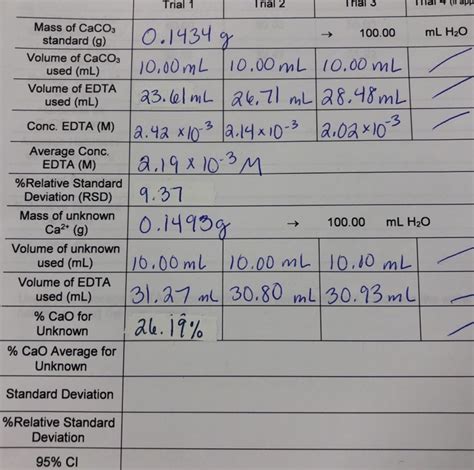 Trial 1 Trial 2 Trial 3 Trial 4 (if app
Mass of CaCO₃ standard (g) 0.1434 g → 100.00 mL H₂O
Volume of CaCO₃ used (mL) 10.00 mL 10.00 mL 10.00 mL
Volume of EDTA used (mL) 23.61 mL 26.71 mL 28.48 mL
Conc. EDTA (M) 2.42 x10⁻³ 2.14 x 10⁻³ 2.02 x10⁻³
Average Conc. EDTA (M) 2.19 x 10⁻³ M
%Relative Standard Deviation (RSD) 9.37
Mass of unknown Ca²⁺ (g) 0.1493g → 100.00 mL H₂O
Volume of unknown used (mL) 10.00 mL 10.00 mL 10.10 mL
Volume of EDTA used (mL) 31.27 mL 30.80 mL 30.93 mL
% CaO for Unknown 26.19%
% CaO Average for Unknown
Standard Deviation
%Relative Standard Deviation
95% CI